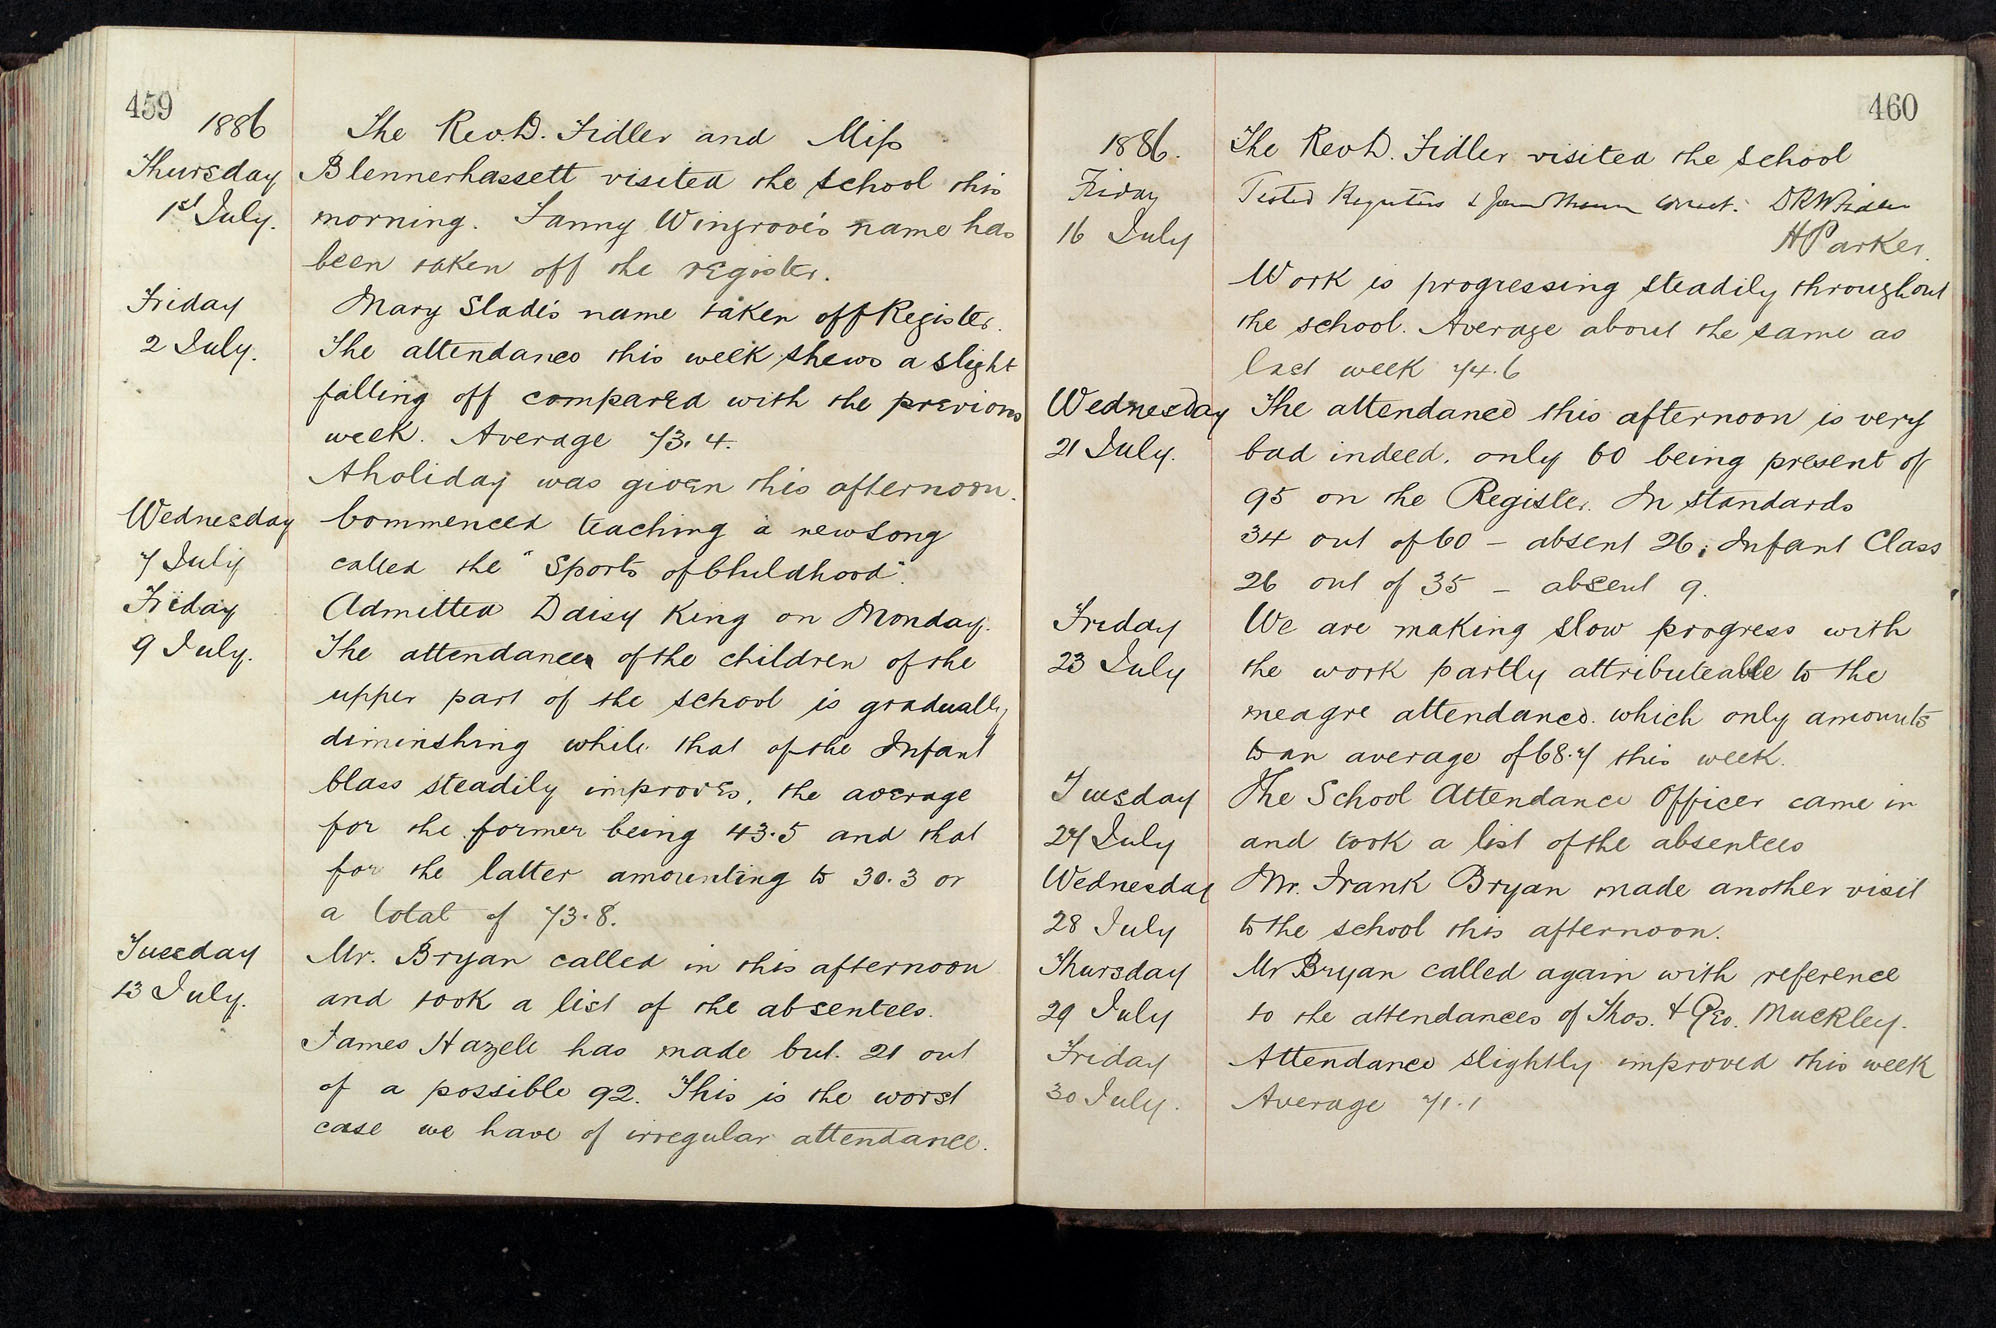 459
1886
The Rev. D. Fidler and Miss
Thursday
Blennerhassett visited the school this
1st July.
morning. Fanny Wingrove's name has
been taken off the register.
Friday
Mary Slade's name taken off Register.
2 July.
The attendance this week shews a slight
falling off compared with the previous
week. Average 73.4.
A holiday was given this afternoon.
Wednesday
Commenced teaching a new song
7 July
called the "Sports of Childhood".
Friday
Admitted Daisy King on Monday.
9 July.
The attendance of the children of the
upper part of the school is gradually
diminshing while that of the Infant
Class steadily improves, the average
for the former being 43.5 and that
for the latter amounting to 30.3 or
a total of 73.8.
Tuesday
Mr. Bryan called in this afternoon
13 July.
and took a list of the absentees.
James Hazell has made but 21 out
of a possible 92. This is the worst
case we have of irregular attendance.
460
1886.
The Rev D. Fidler visited the school
Friday
Tested Registers & found them correct.
16 July
H Parker.
Work is progressing steadily throughout
the school. Average about the same as
last week 74.6
Wednesday
The attendance this afternoon is very
21 July.
bad indeed, only 60 being present of
95 on the Register. In standards
34 out of 60 – absent 26; Infant Class
26 out of 35 – absent 9.
Friday
We are making slow progress with
23 July
the work partly attributeable to the
meagre attendance which only amounts
to an average of 68.7 this week.
Tuesday
The School Attendance Officer came in
27 July
and took a list of the absentees
Wednesday
Mr. Frank Bryan made another visit
28 July
to the school this afternoon.
Thursday
Mr Bryan called again with reference
29 July
to the attendances of Thos. & Geo. Muckley.
Friday
Attendance slightly improved this week
30 July.
Average 71.1